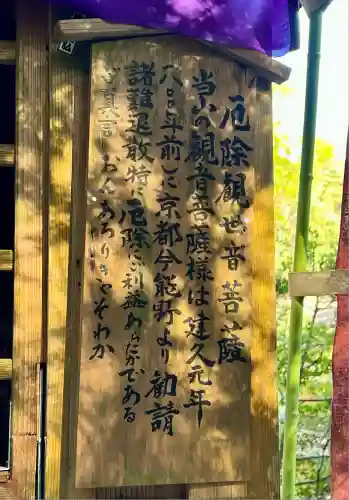 厄除観世音菩薩
当山の観音菩薩様は建久元年
八百年前しに京都今熊野より勧請
諸難退散特に厄除にご利益あらたかである
御真言 おんあろりきゃそわか